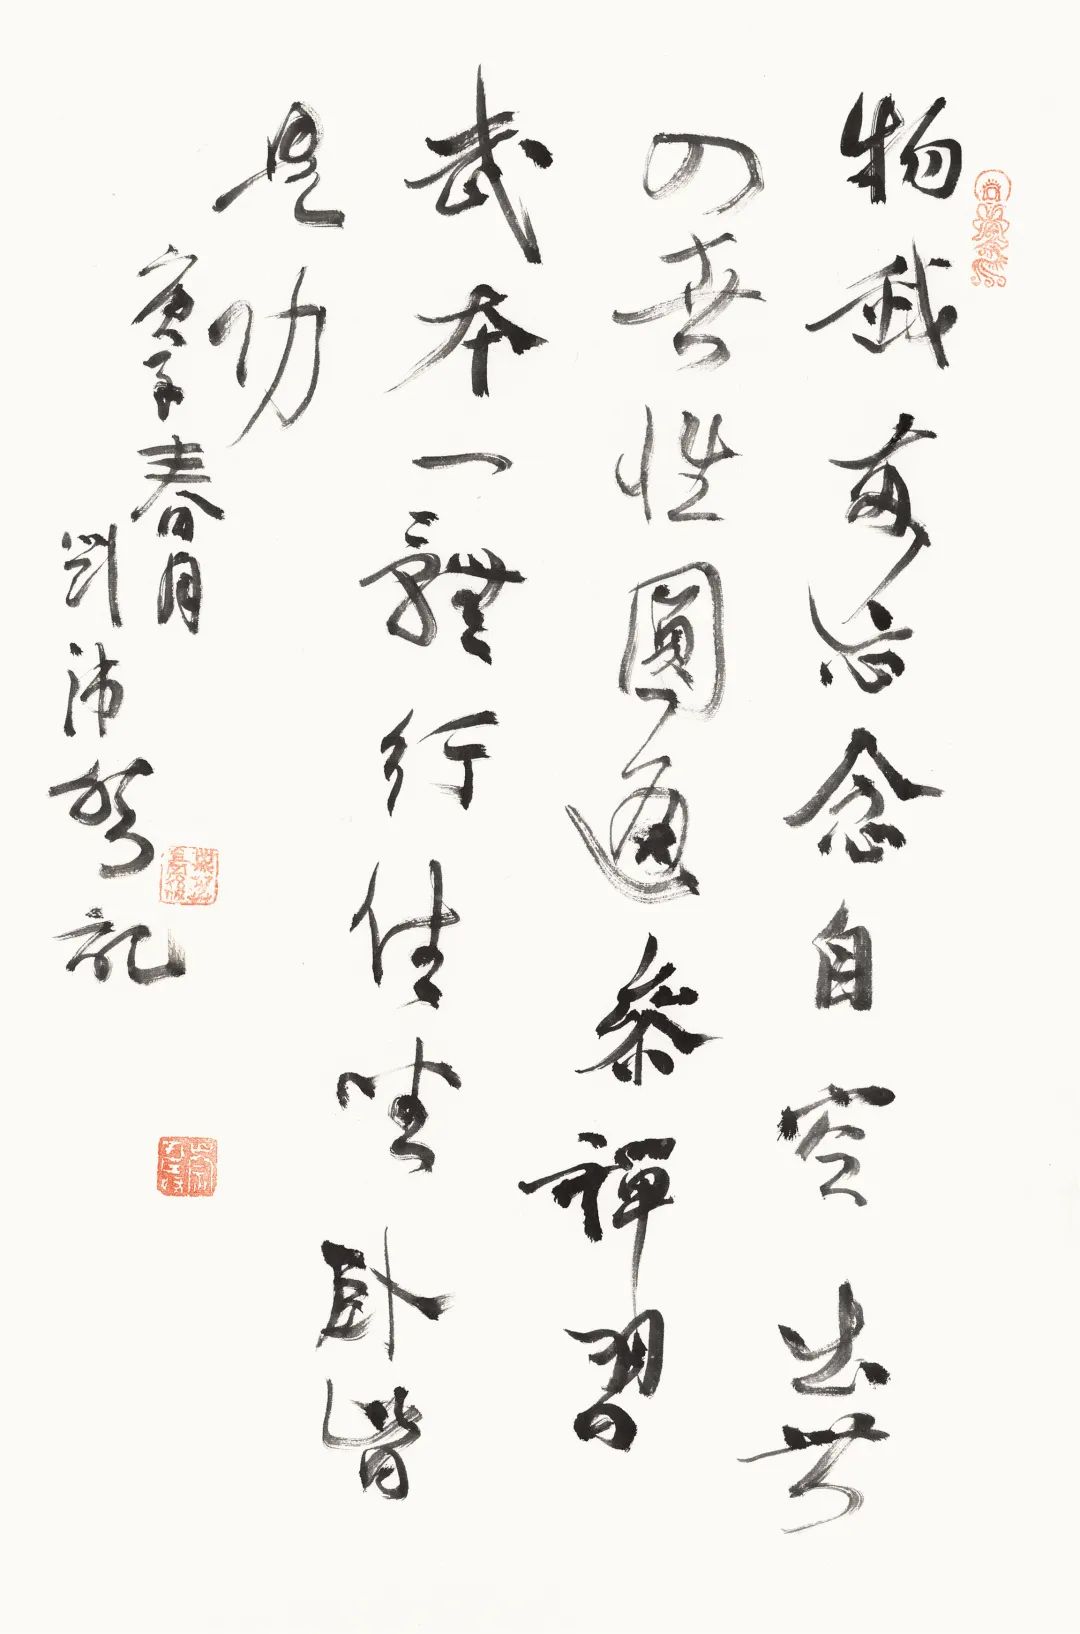 物我兩忘念自空出世
入世性圓通參禪習
武本一體行住坐卧皆
是功
庚子春月
劉沛記